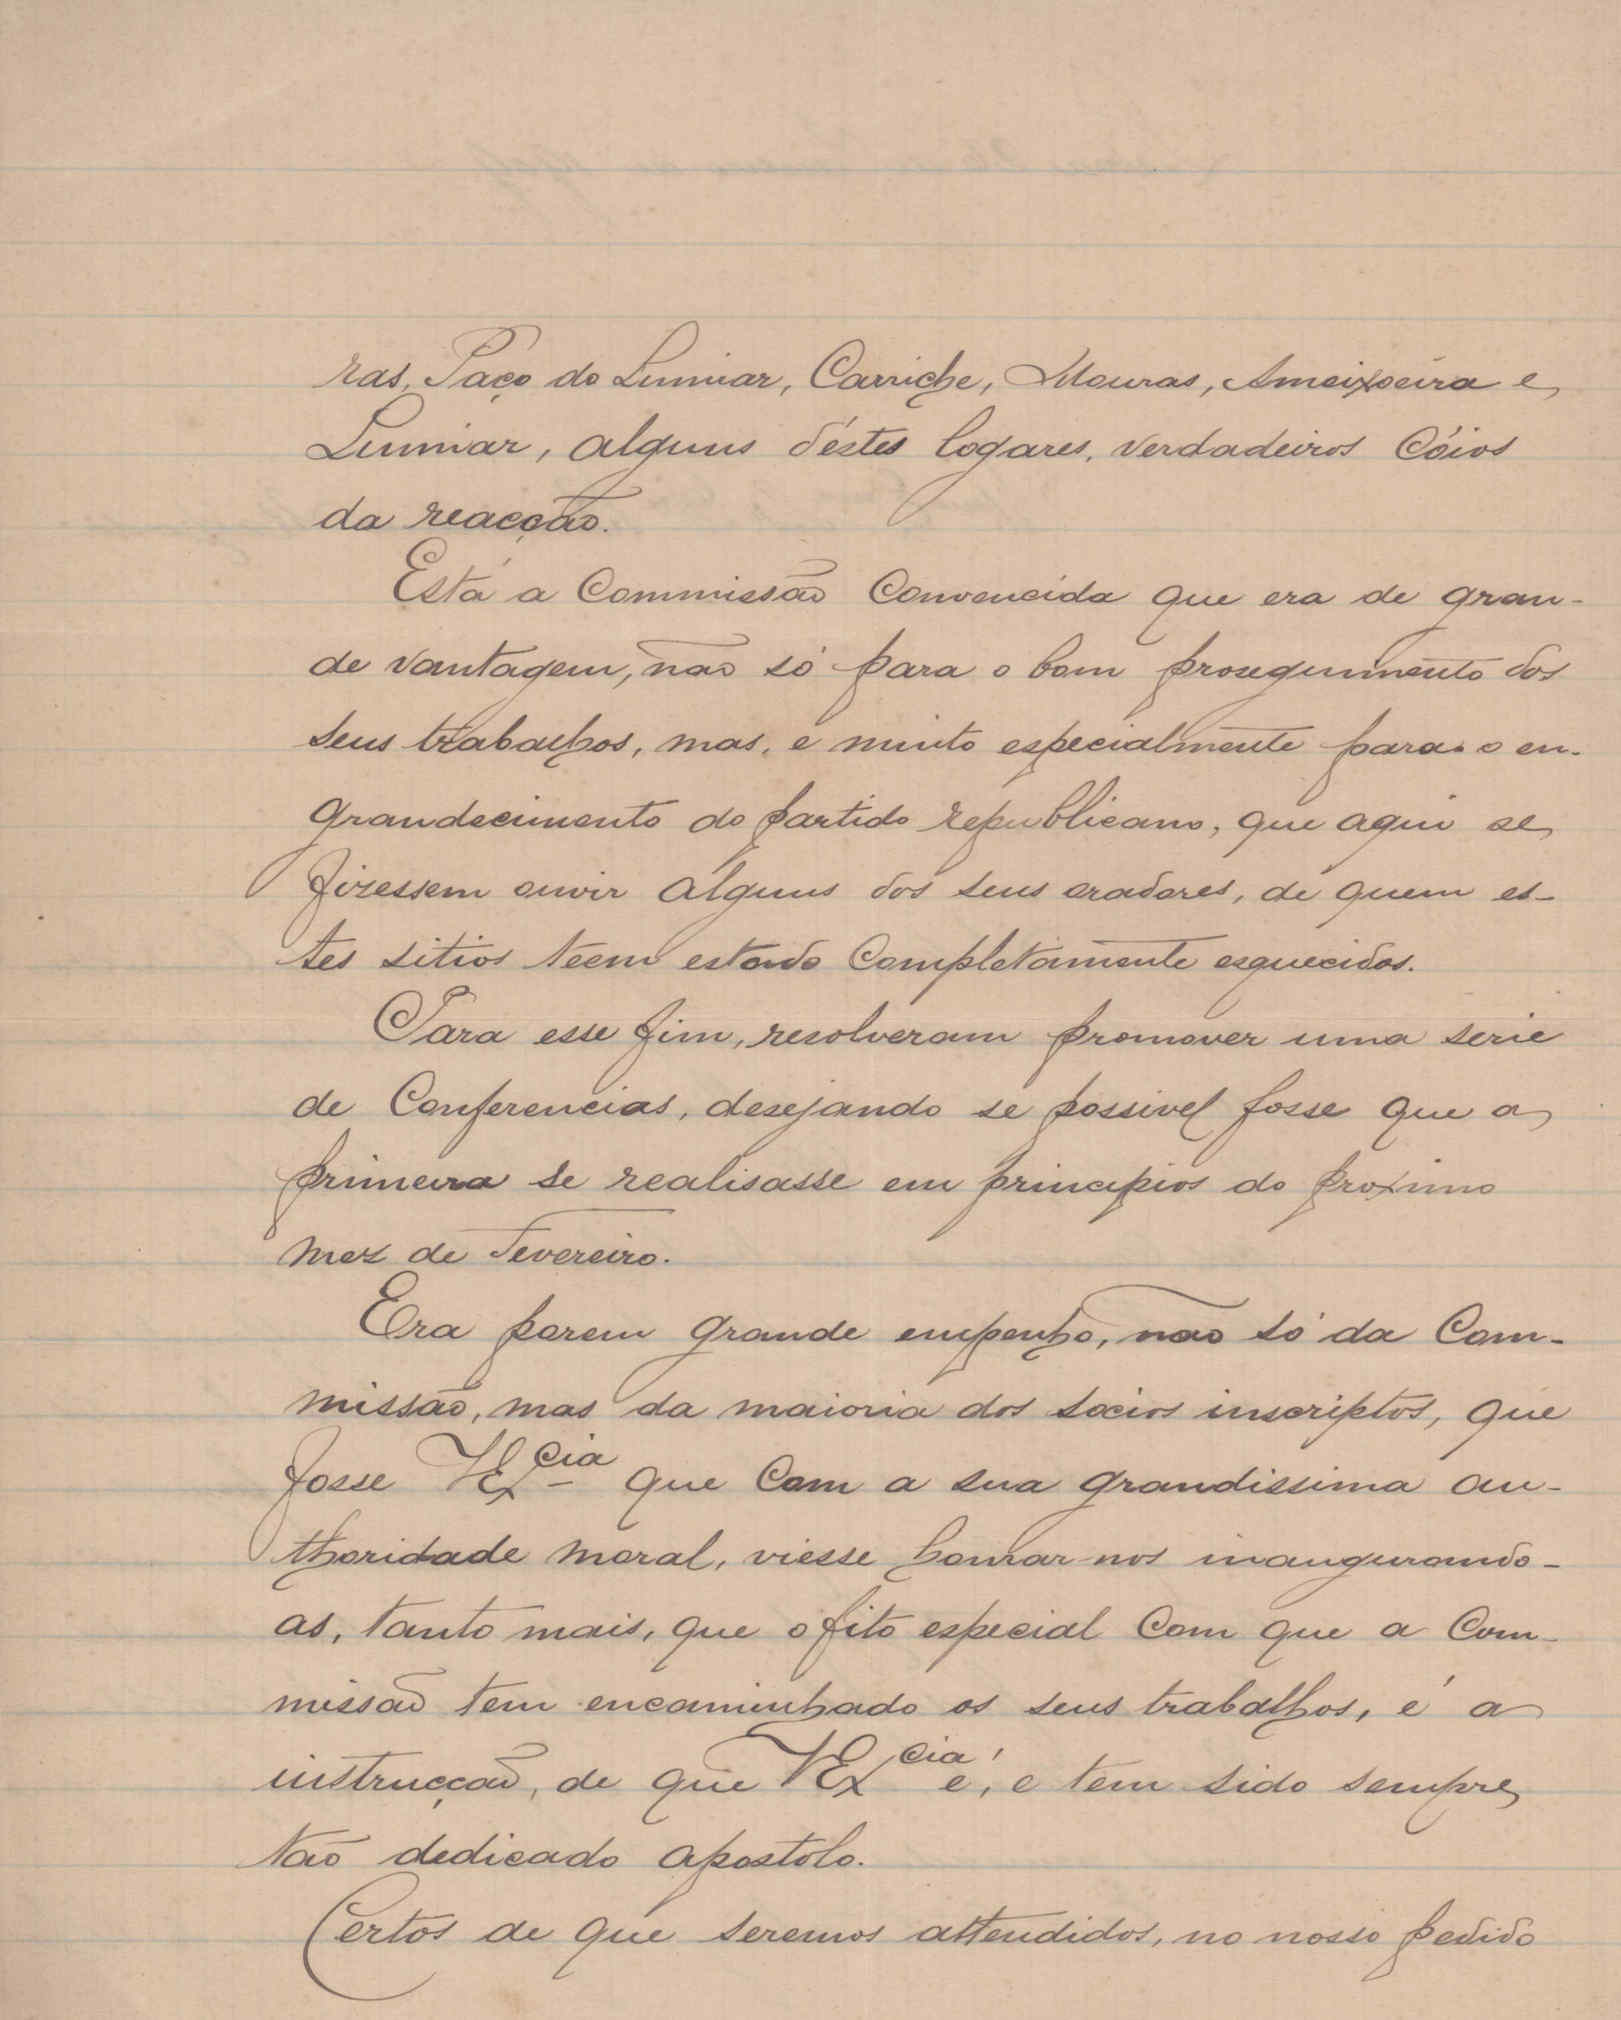 ras, Paço do Lumiar, Carriche, Mouras, Ameixoeira e
Lumiar, alguns d'éstes logares, verdadeiros cóios
da reacção.
Está a Commissão convencida que era de gran-
de vantagem, não só para o bom proseguimento dos
seus trabalhos, mas, e muito especialmente para o en-
grandecimento do partido republicano, que aqui se
fizessem ouvir alguns dos seus oradores, de quem es-
tes sitios teem estado completamente esquecidos.
Para esse fim, resolveram promover uma serie
de Conferencias, desejando se possivel fosse que a
primeira se realisasse em principios do proximo
mez de Fevereiro.
Era porem grande empenho, não só da Com-
missão, mas da maioria dos socios inscriptos, que
fosse VEx.cia que com a sua grandissima au-
thoridade moral, viesse honrar nos inaugurando-
as, tanto mais, que o fito especial com que a Com-
missão tem encaminhado os seus trabalhos, é a
instrucção, de que VEx cia é, e tem sido sempre
tão dedicado apostolo.
Certos de que seremos attendidos, no nosso pedido